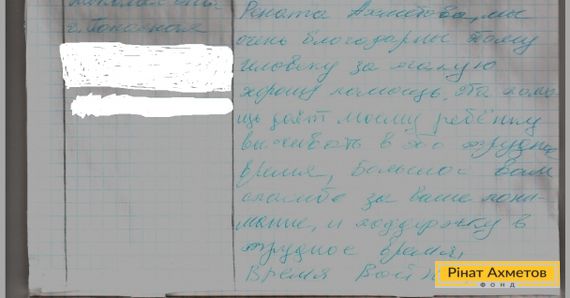 г. Попасная
Рената Ахметова, мы
очень благодарны тому
человеку за такую
хорошу помощь. Эта помо-
щь даёт моему ребёнку
выживать в это трудное
время, Большое вам
спасибо за ваше пони-
мание, и поддержку в
трудное время,
Время Вой
Рінат Ахметов
ФОНД